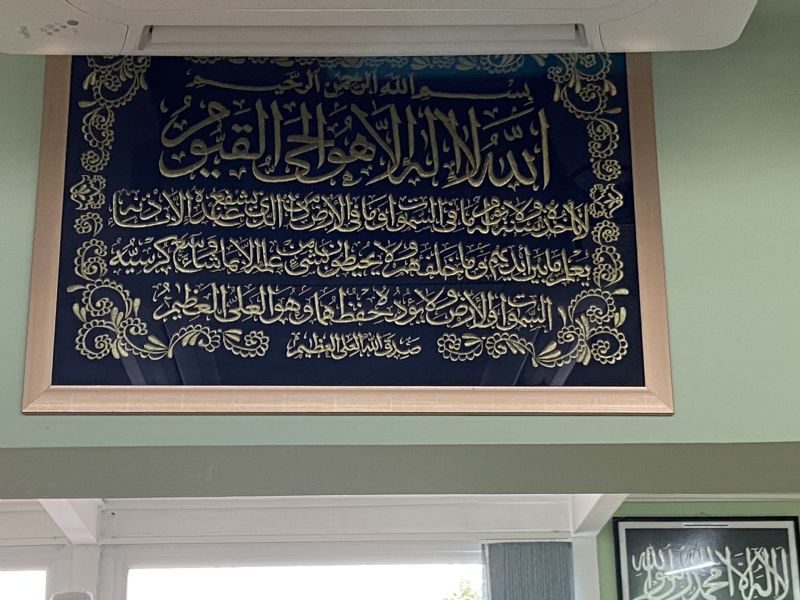 بسم الله الرحمن الرحيم
الله لا إله إلا هو الحي القيوم
لا تأخذه سنة ولا نوم له ما في السموات وما في الأرض من ذا الذي يشفع عنده إلا بإذنه
يعلم ما بين أيديهم وما خلفهم ولا يحيطون بشيء من علمه إلا بما شاء وسع كرسيه
السموات والأرض ولا يؤده حفظهما وهو العلي العظيم
صدق الله العلي العظيم
لا إله إلا الله محمد رسول الله